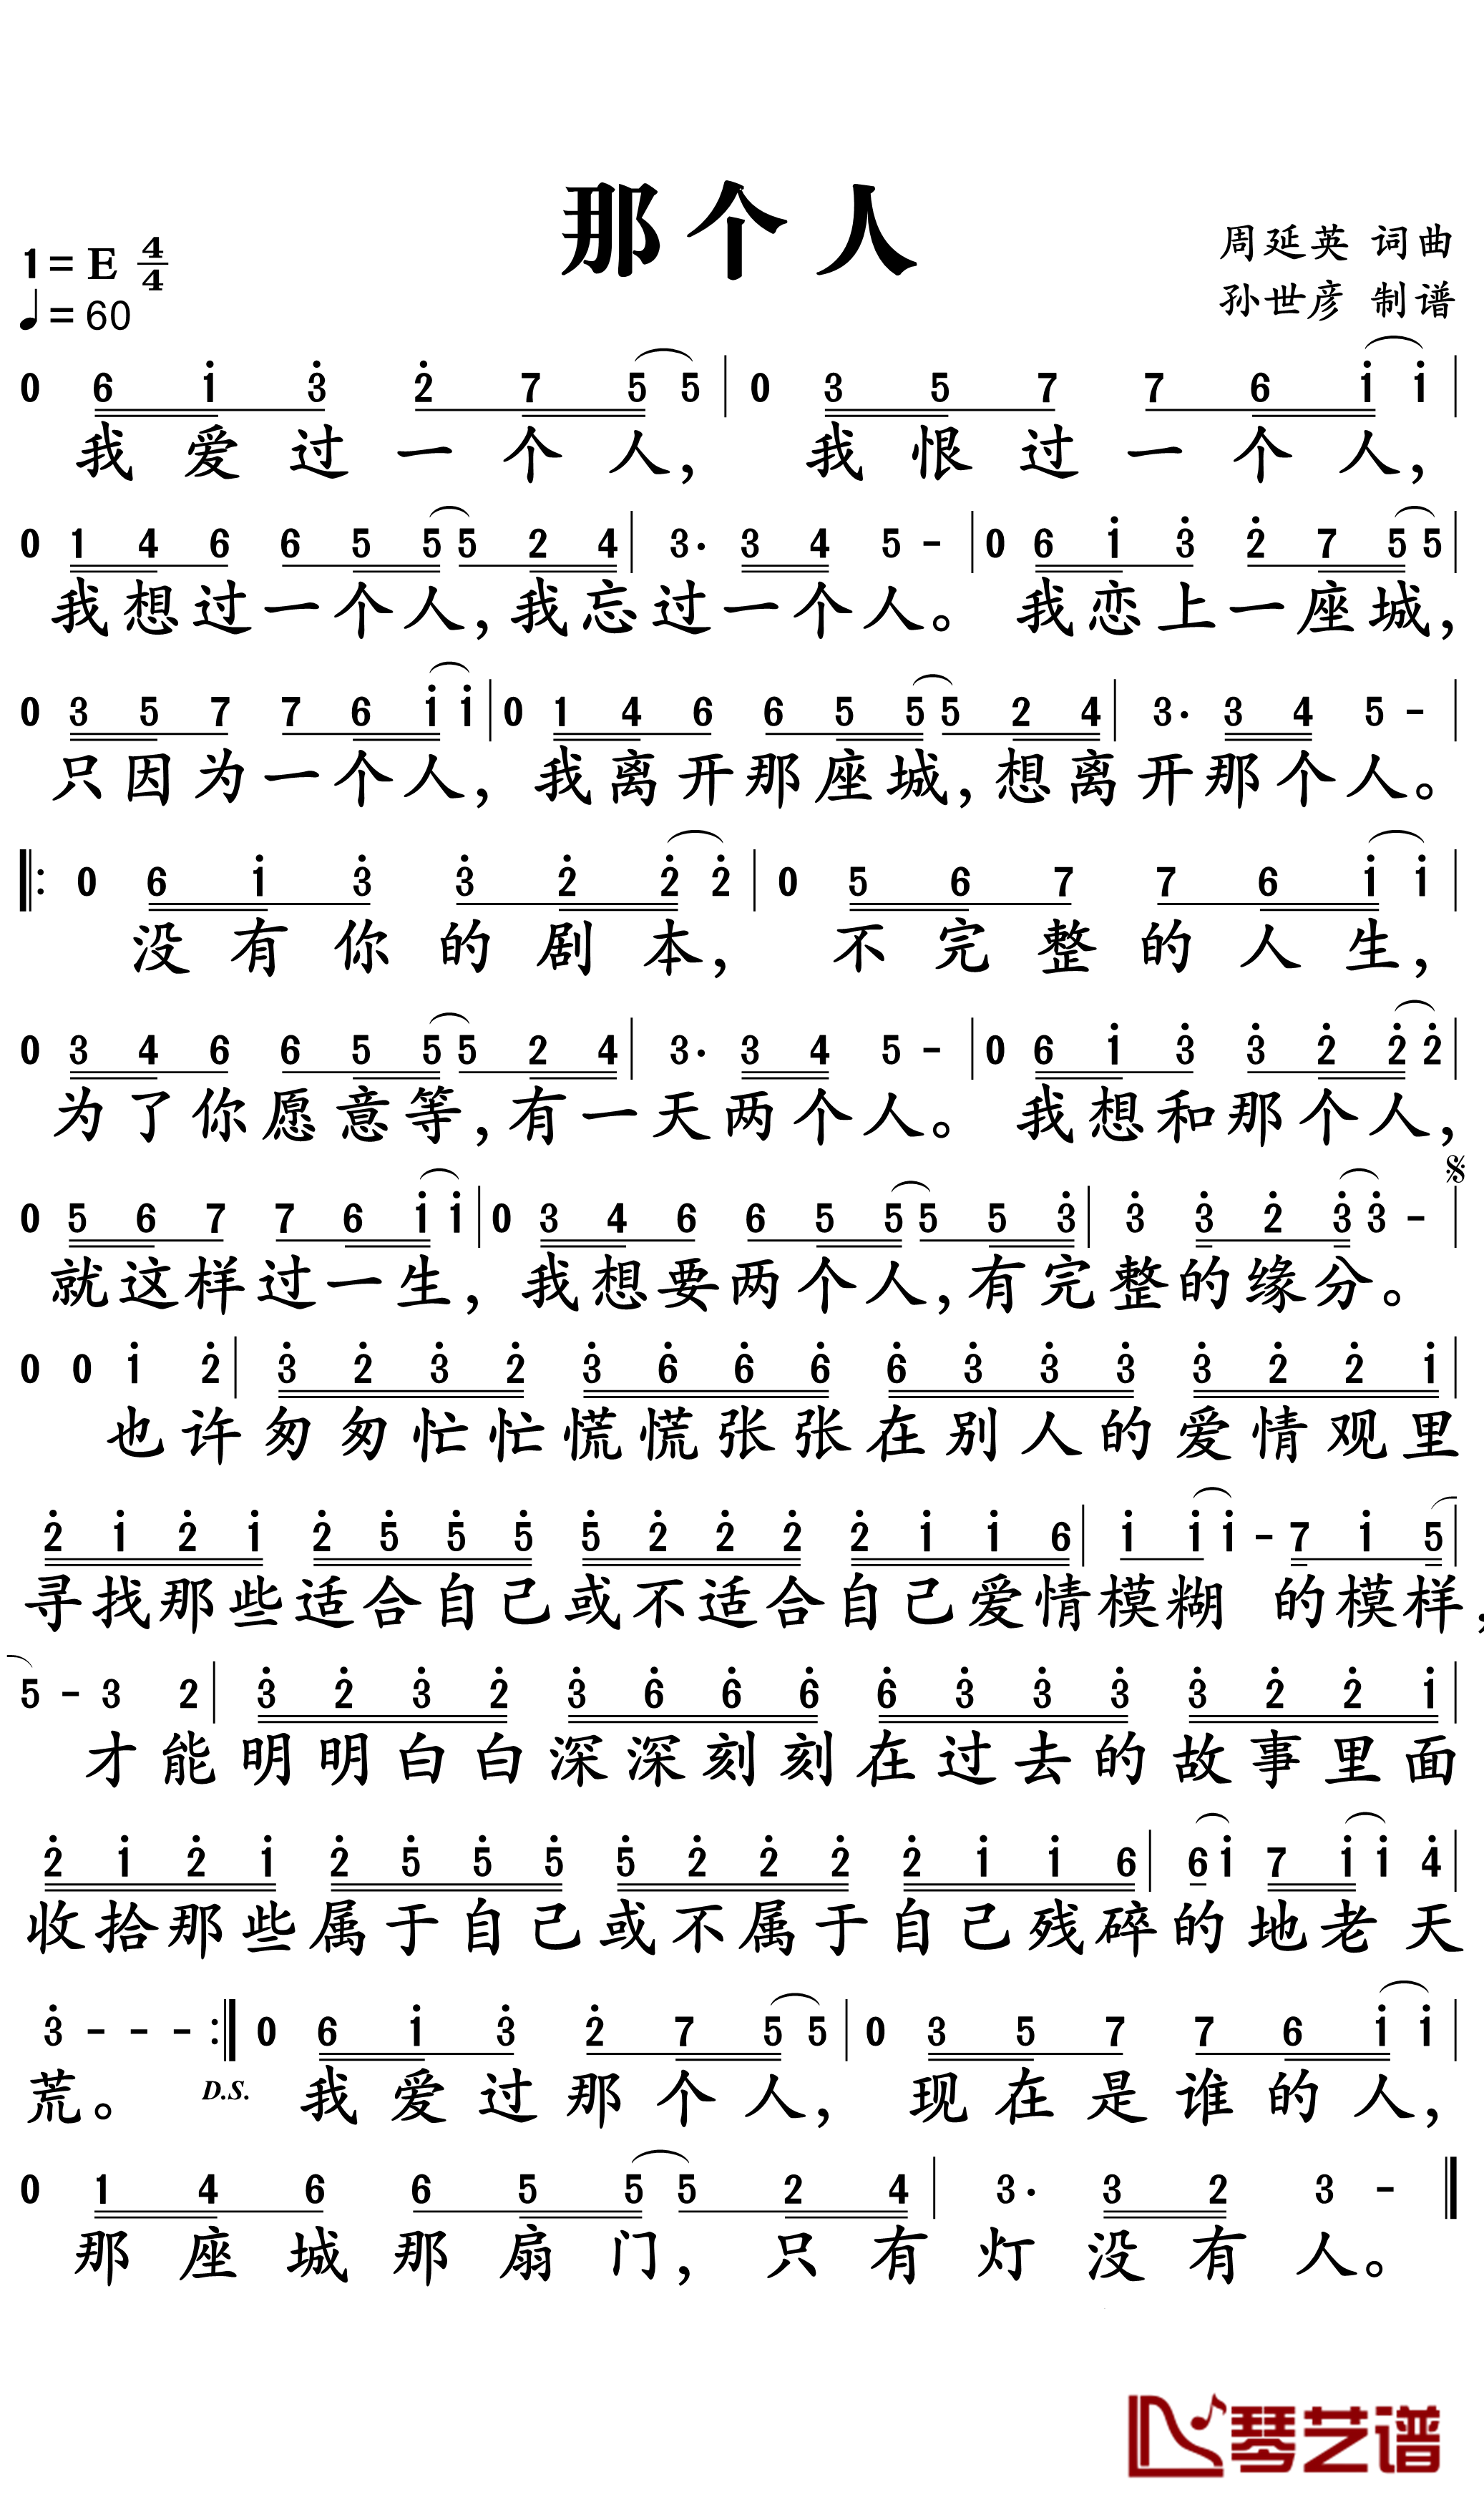 那个人
周延英 词曲
孙世彦 制谱
1=E 4/4
♩=60
0 6 1̇ 3̇ 2̇ 7 5 5 | 0 3 5 7 7 6 1̇ 1̇ |
我爱过一个人，我恨过一个人，
0 1 4 6 6 5 5 5 2 4 | 3· 3 4 5 - | 0 6 1̇ 3̇ 2̇ 7 5 5 |
我想过一个人，我忘过一个人。我恋上一座城，
0 3 5 7 7 6 1̇ 1̇ | 0 1 4 6 6 5 5 5 2 4 | 3· 3 4 5 - |
只因为一个人，我离开那座城，想离开那个人。
‖: 0 6 1̇ 3̇ 3̇ 2̇ 2̇ 2̇ | 0 5 6 7 7 6 1̇ 1̇ |
没有你的剧本，不完整的人生，
0 3 4 6 6 5 5 5 2 4 | 3· 3 4 5 - | 0 6 1̇ 3̇ 3̇ 2̇ 2̇ 2̇ |
为了你愿意等，有一天两个人。我想和那个人，
𝄋
0 5 6 7 7 6 1̇ 1̇ | 0 3 4 6 6 5 5 5 5 3̇ | 3̇ 3̇ 2̇ 3̇ 3̇ - |
就这样过一生，我想要两个人，有完整的缘分。
0 0 1̇ 2̇ | 3̇ 2̇ 3̇ 2̇ 3̇ 6̇ 6̇ 6̇ 6̇ 3̇ 3̇ 3̇ 3̇ 2̇ 2̇ 1̇ |
也许匆匆忙忙慌慌张张在别人的爱情观里
2̇ 1̇ 2̇ 1̇ 2̇ 5̇ 5̇ 5̇ 5̇ 2̇ 2̇ 2̇ 2̇ 1̇ 1̇ 6 | 1̇ 1̇ 1̇ - 7 1̇ 5 |
寻找那些适合自己或不适合自己爱情模糊 的模样，
5 - 3 2 | 3̇ 2̇ 3̇ 2̇ 3̇ 6̇ 6̇ 6̇ 6̇ 3̇ 3̇ 3̇ 3̇ 2̇ 2̇ 1̇ |
才能明明白白深深刻刻在过去的故事里面
2̇ 1̇ 2̇ 1̇ 2̇ 5̇ 5̇ 5̇ 5̇ 2̇ 2̇ 2̇ 2̇ 1̇ 1̇ 6 | 6 1̇ 7 1̇ 1̇ 4̇ |
收拾那些属于自己或不属于自己残碎的地老天
3̇ - - - :‖ 0 6 1̇ 3̇ 2̇ 7 5 5 | 0 3 5 7 7 6 1̇ 1̇ |
荒。 D.S. 我爱过那个人，现在是谁的人，
0 1 4 6 6 5 5 5 2 4 | 3· 3 2 3 - ‖
那座城那扇门，只有灯没有人。
琴艺谱